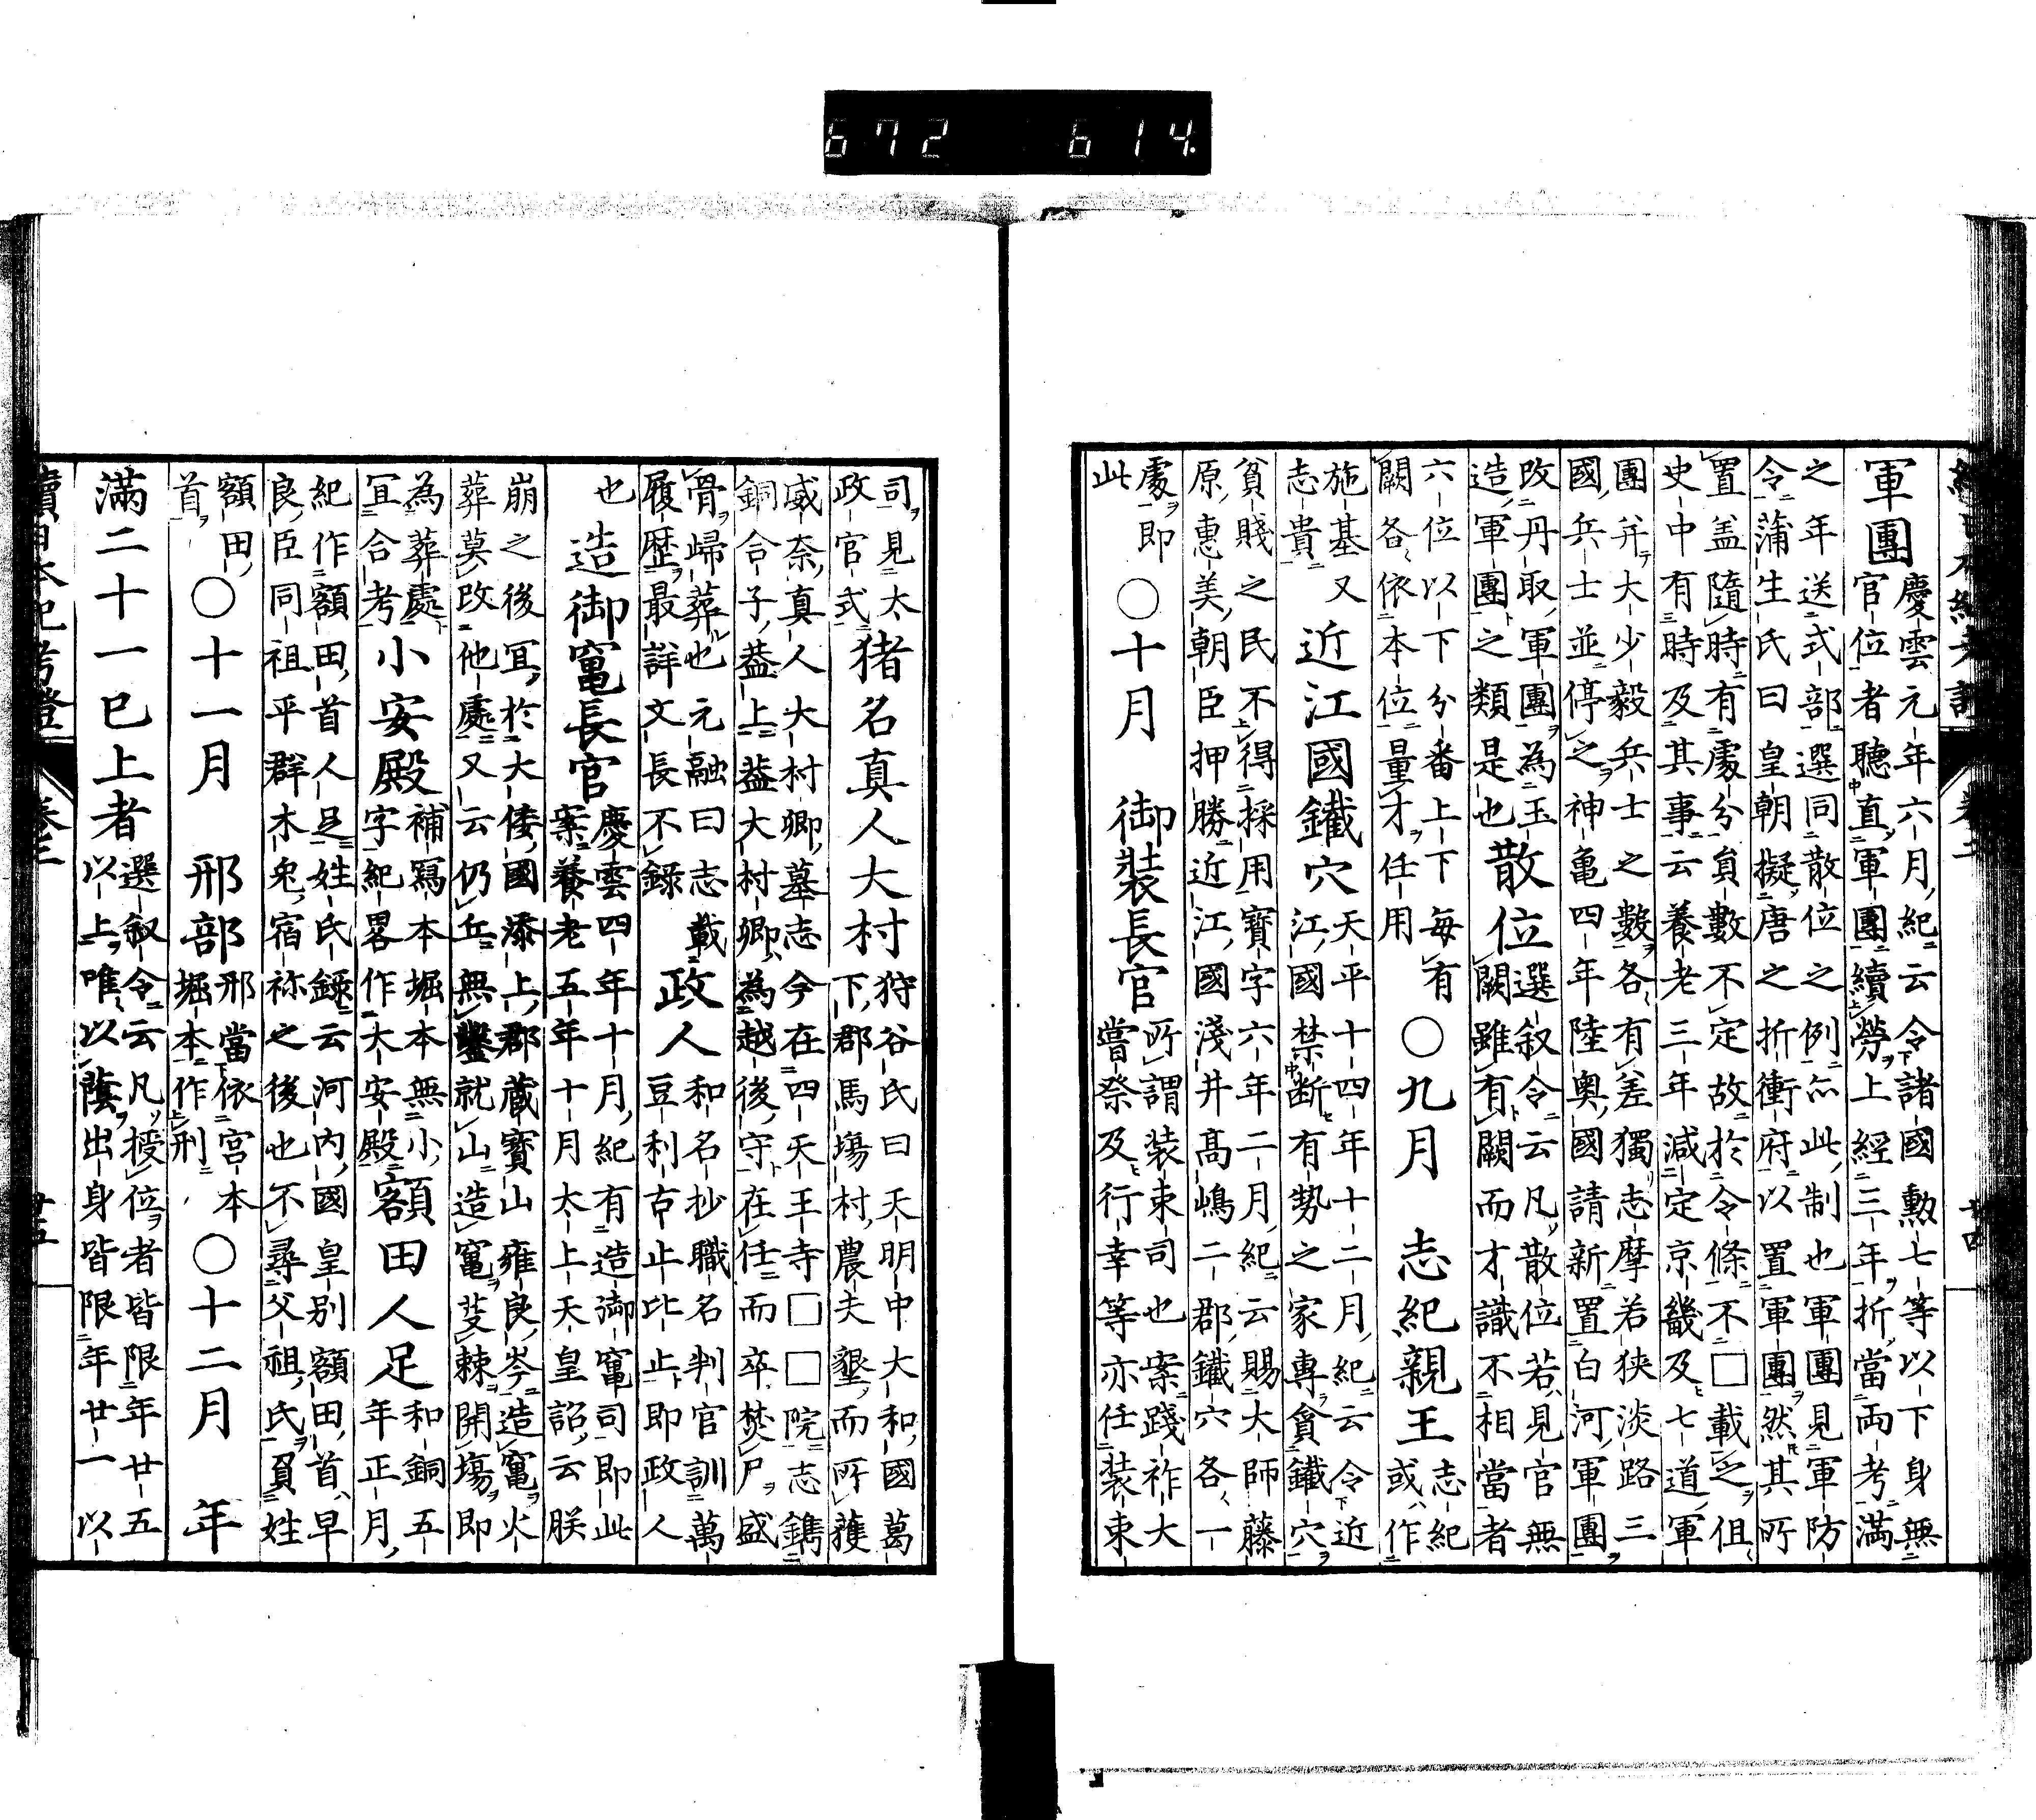 672 614
軍團
慶雲元年六月紀云令諸國勳七等以下身無
官位者聽直軍團續勞上經三年折當兩考滿
之年送式部選同散位之例亦此制也軍團見軍防
令蒲生氏曰皇朝擬唐之折衝府以置軍團然其所
置盖隨時有處分負數不定故於令條不□載之但
史中有時及其事云養老三年減定京畿及七道軍
團并大少毅兵士之數各有差獨志摩若狹淡路三
國兵士並停之神亀四年陸奧國請新置白河軍團
改丹取軍團為玉
造軍團之類是也
散位
選叙令云凡散位若見官無
闕雖有闕而才識不相當者
六位以下分番上下每有
闕各依本位量才任用
〇九月 志紀親王
志紀
或作
施基又
志貴
近江國鐵穴
天平十四年十二月紀云令近
江國禁断有勢之家專貪鐵穴
貧賤之民不得採用寶字六年二月紀云賜大師藤
原惠美朝臣押勝近江國淺井高嶋二郡鐵穴各一
處即
此
〇十月 御裝長官
所謂裝束司也案踐祚大
嘗祭及行幸等亦任裝束
司見太
政官式
猪名真人大村
狩谷氏曰天明中大和國葛
下郡馬塲村農夫墾而所獲
威奈真人大村卿墓志今在四天王寺□□院志鐫
銅合子葢上葢大村卿為越後守在任而卒焚尸盛
骨歸葬也元融曰志載
履歷最詳文長不錄
政人
和名抄職名判官訓萬
豆利古止比止即政人
也
造御竃長官
慶雲四年十月紀有造御竃司即此
案養老五年十月太上天皇詔云朕
崩之後冝於大倭國添上郡蔵寳山雍良岑造竃火
葬莫改他處又云仍丘無鑿就山造竃芟棘開塲即
為葬處
冝合考
小安殿
補寫本堀本無小
字紀畧作大安殿
額田人足
和銅五
年正月
紀作額田首人足姓氏錄云河内國皇別額田首早
良臣同祖平群木兔宿祢之後也不尋父祖氏負姓
額田
首
〇十一月 邢部
邢當依宮本
堀本作刑
〇十二月 年
滿二十一巳上者
選叙令云凡授位者皆限年廿五
以上唯以蔭出身皆限年廿一以